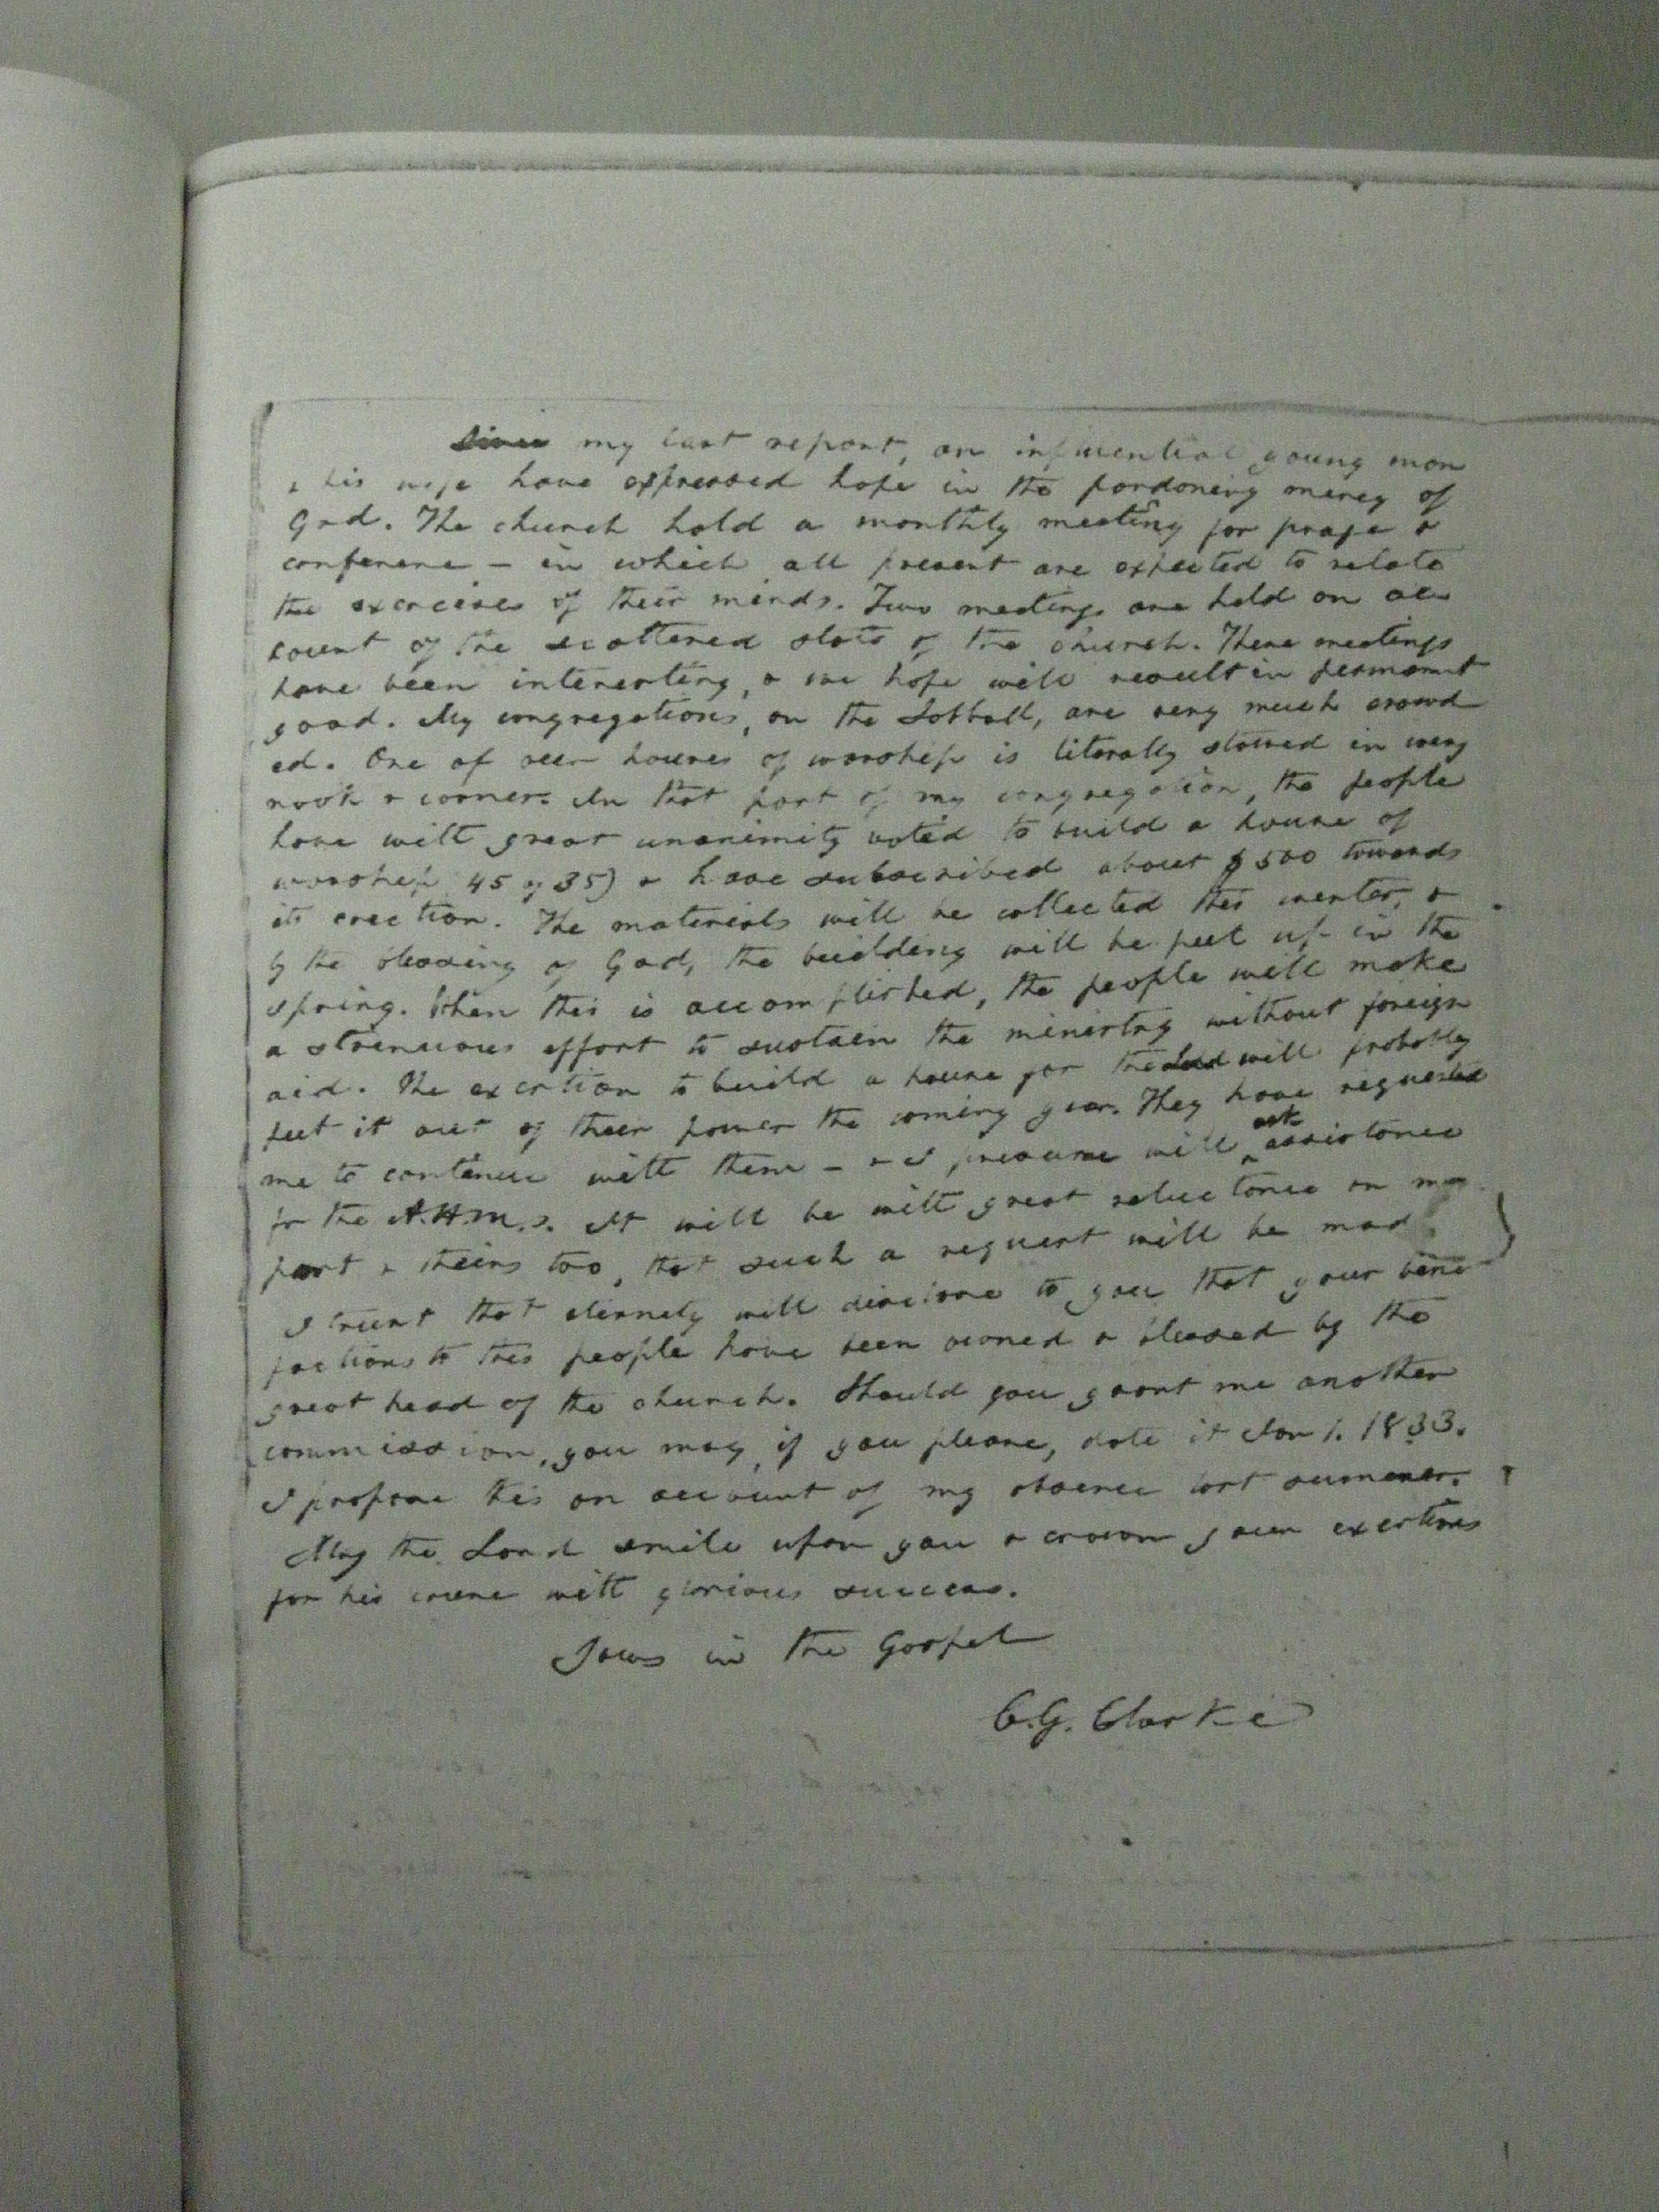 Since my last report, an influential young man
& his wife have expressed hope in the pardoning mercy of
God. The church hold a monthly meeting for praye &
conference – in which all present are expected to relate
the exercises of their minds. Two meetings are held on ac
count of the scattered state of the church. These meetings
have been interesting, & we hope will result in permanent
good. My congregations, on the Sabbath, are very much crowd
ed. One of our houses of worship is literally stowed in every
nook & corner. In that part of my congregation, the people
have with great unanimity voted to build a house of
worship 45 by 35) & have subscribed about $500 towards
its erection. The materials will be collected this winter, &
by the blessing of God, the building will be put up in the
spring. When this is accomplished, the people will make
a strenuous effort to sustain the ministry without foreign
aid. The exertion to build a house for the Lord will probably
put it out of their power the coming year. They have requested
me to continue with them – & I presume will ask assistance
fr the A.H.M.S. It will be with great reluctance on my
part & theirs too, that such a request will be mad
I trust that eternity will disclose to you that your bene
factions to this people have been owned & blessed by the
great head of the church. Should you grant me another
commission, you may, if you please, date it Jan 1. 1833.
I propose this on account of my absence last summer.
May the Lord smile upon you & crown your exertions
for his cause with glorious success.
Yours in the Gospel
C.G. Clarke